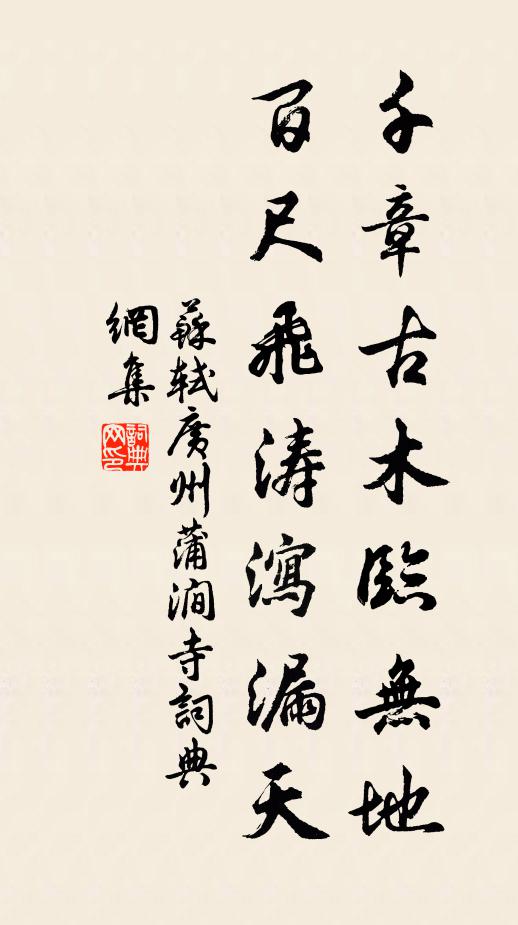 千章古木臨無地
百尺飛濤瀉漏天
蘇軾廣州蒲澗寺詞典
網集
詞典
网印